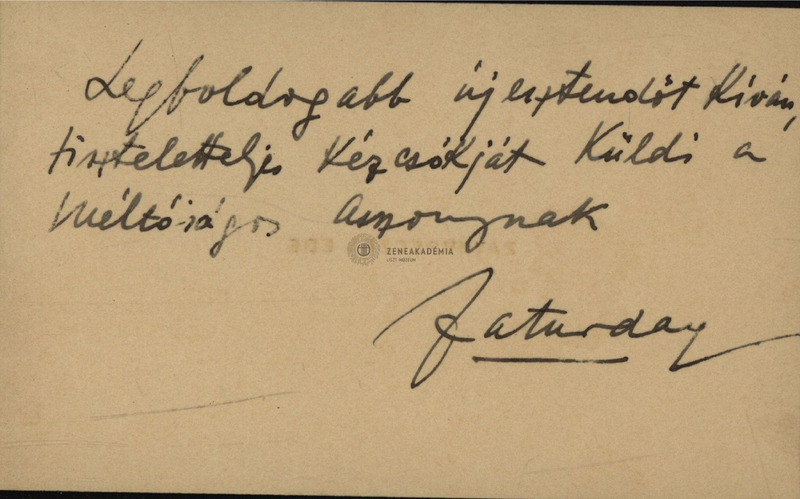 Legboldogabb újesztendőt kíván,
tiszteletteljes kézcsókját küldi a
Méltóságos Asszonynak
ZENEAKADÉMIA
LISZT MÚZEUM
Zaturday